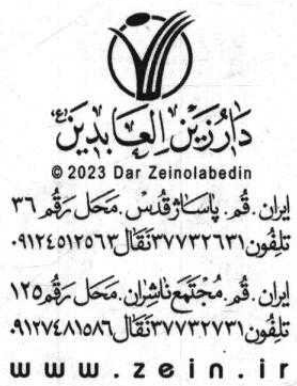 دار زين العابدين (ع)
© 2023 Dar Zeinolabedin
ايران. قُم. پاساژ قُدس. محَل رَقُم ٣٦
تلِفُون ٣٧٧٣٢٦٣١ نَقّال ٠٩١٢٤٥١٢٥٦٣
ايران. قُم. مُجْتَمَع ناشِران. محَل رَقُم ١٢٥
تلِفُون ٣٧٧٣٢٧٣١ نَقّال ٠٩١٢٧٤٨١٥٨٦
www.zein.ir